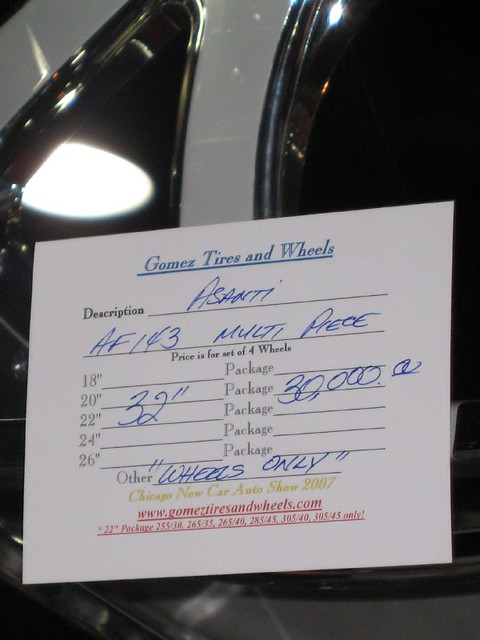 Gomez Tires and Wheels
Description ASANTI
AF143 MULTI PIECE
Price is for set of 4 Wheels
18" Package
20" 32" Package 30,000.00
22" Package
24" Package
26" Package
Other "WHEELS ONLY"
Chicago New Car Auto Show 2007
www.gomeztiresandwheels.com
* 22" Package 255/30, 265/35, 265/40, 285/45, 305/40, 305/45 only!